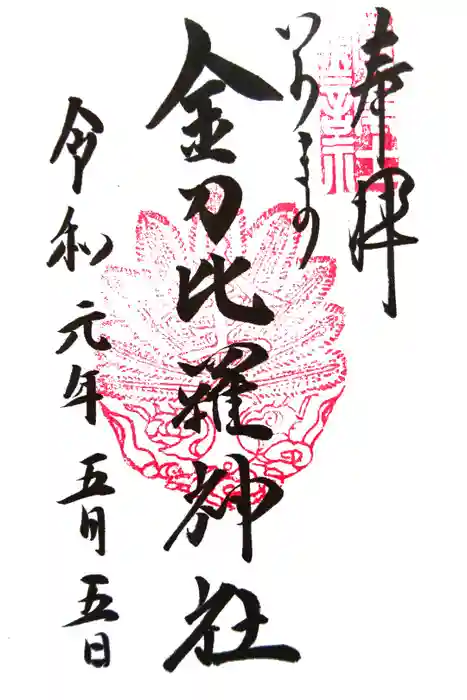 奉拝
いりやまの
金刀比羅神社
令和元年五月五日